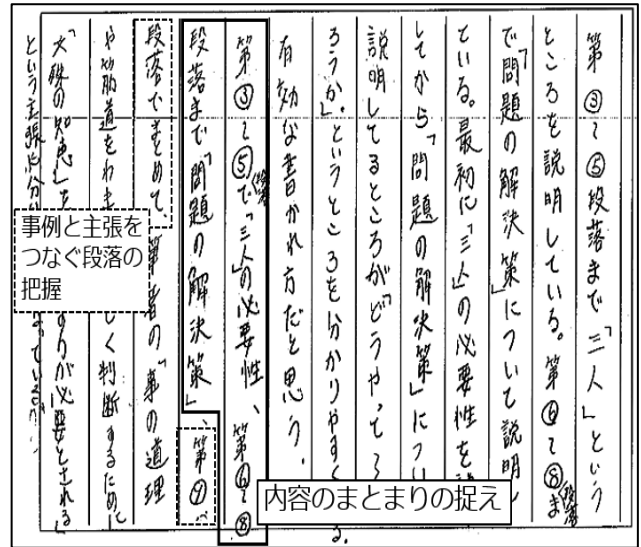 第③〜⑤段落まで「三人」という
ところを説明している。第⑥〜⑧段落ま
で「問題の解決策」について説明し
ている。最初に「三人」の必要性を説
してから「問題の解決策」につい
説明してるところが「どうやって
ろうか。」というところを分かりやすく
る。
有効な書かれ方だと思う。
第③〜⑤段落で「三人」の必要性、第⑥〜⑧
段落まで「問題の解決策」、第⑨
段落でまとめて、筆者の「事の道理
や筋道をわきま しく判断するために
「文殊の知恵」 が必要とされる」
という主張が分
事例と主張を
つなぐ段落の
把握
内容のまとまりの捉え